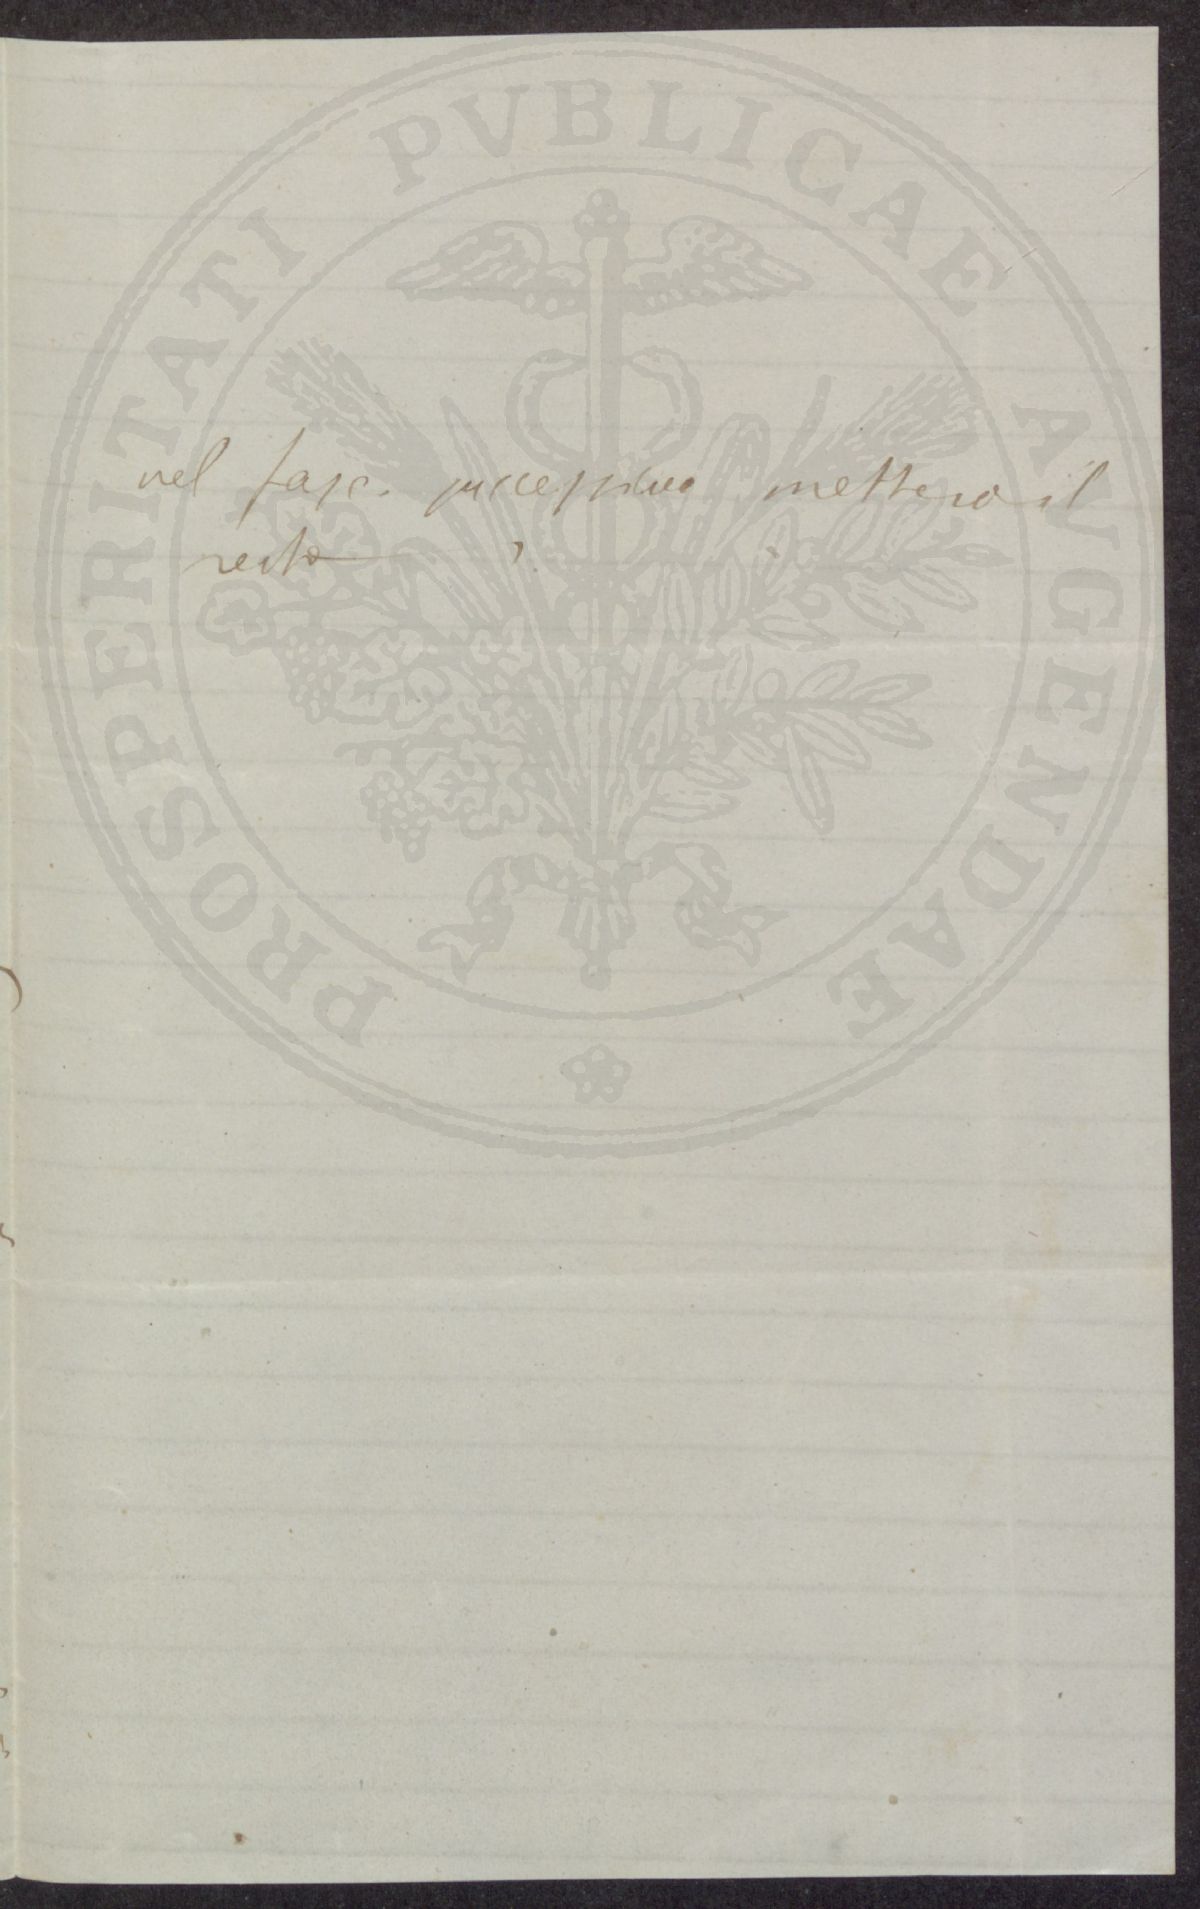 nel fasc. successivo metterò il
resto
PROSPERITATI PVBLICAE AVGENDAE